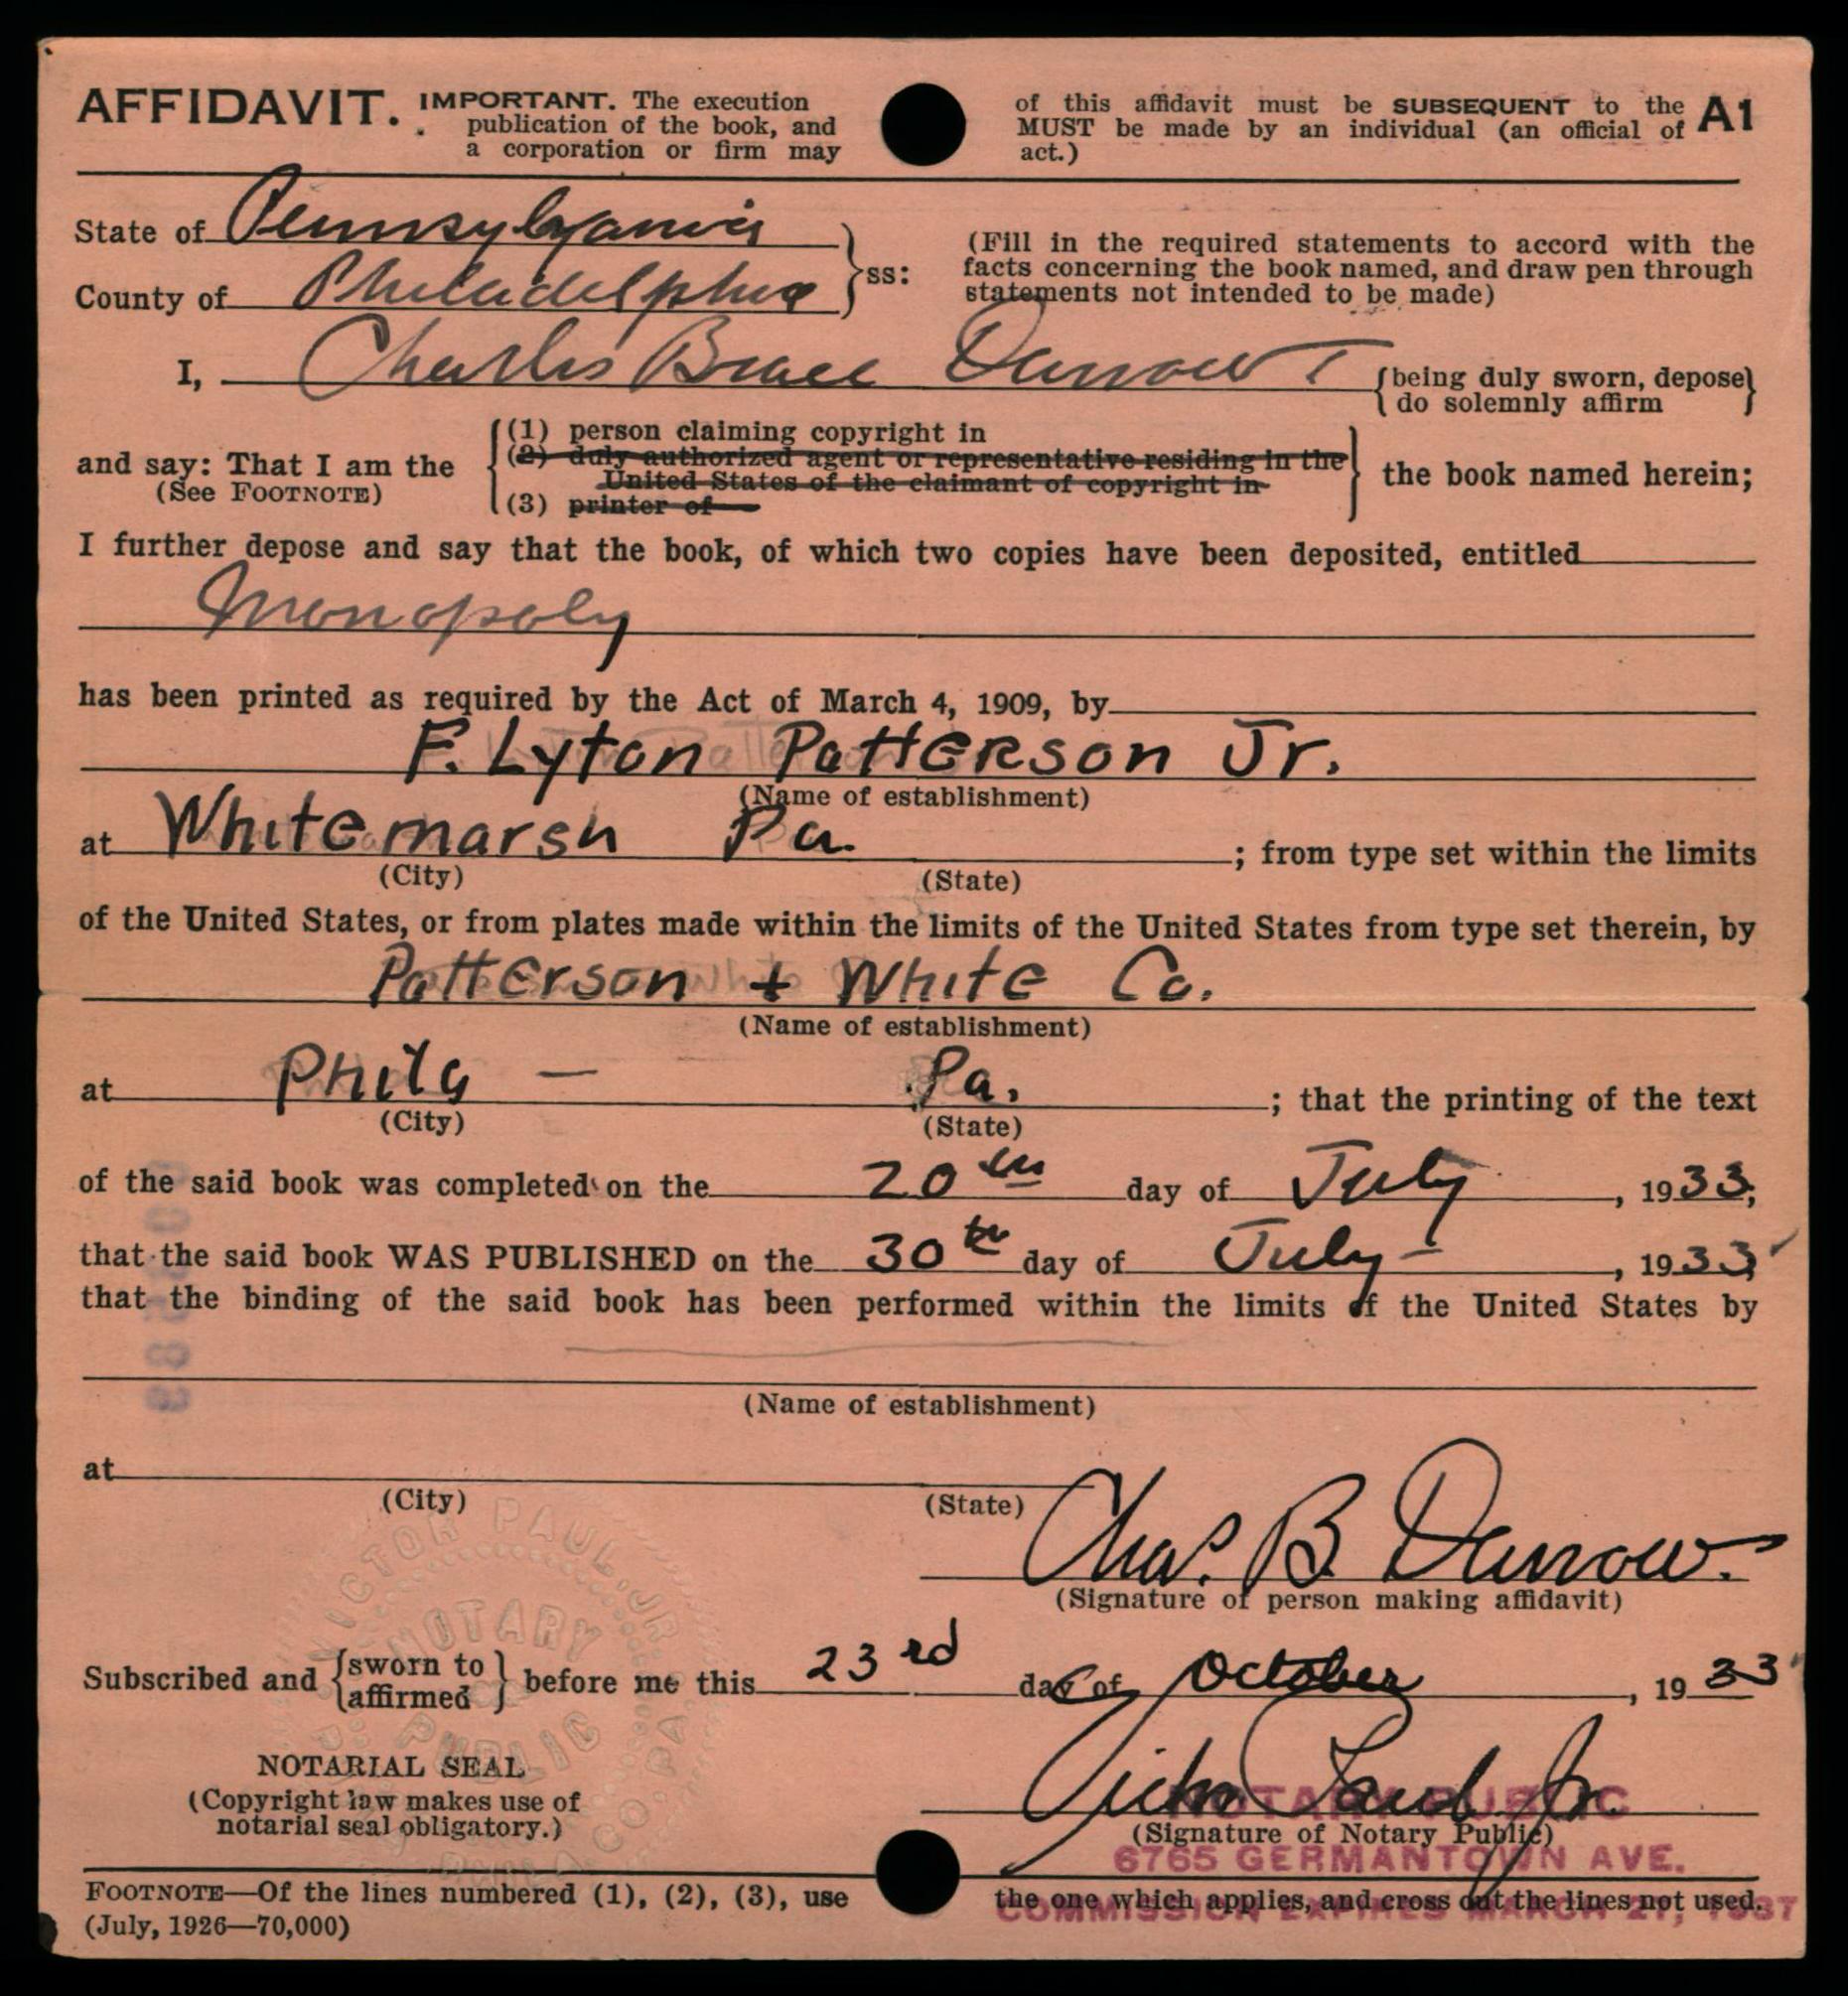 AFFIDAVIT. IMPORTANT. The execution of this affidavit must be SUBSEQUENT to the A1
publication of the book, and MUST be made by an individual (an official of
a corporation or firm may act.)
State of Pennsylvania
County of Philadelphia ss:
(Fill in the required statements to accord with the
facts concerning the book named, and draw pen through
statements not intended to be made)
I, Charles Brace Darrow {being duly sworn, depose}
do solemnly affirm
(1) person claiming copyright in
and say: That I am the (2) duly authorized agent or representative residing in the
United States of the claimant of copyright in the book named herein;
(See FOOTNOTE) (3) printer of
I further depose and say that the book, of which two copies have been deposited, entitled
Monopoly
has been printed as required by the Act of March 4, 1909, by
F. Lyton Patterson Jr.
(Name of establishment)
at Whitemarsh Pa. ; from type set within the limits
(City) (State)
of the United States, or from plates made within the limits of the United States from type set therein, by
Patterson + White Co.
(Name of establishment)
at Phila - Pa. ; that the printing of the text
(City) (State)
of the said book was completed on the 20th day of July, 1933;
that the said book WAS PUBLISHED on the 30th day of July, 1933;
that the binding of the said book has been performed within the limits of the United States by
(Name of establishment)
at
(City) (State)
Chas. B Darrow.
(Signature of person making affidavit)
Subscribed and {sworn to affirmed} before me this 23rd day of October, 1933
VICTOR PAUL JR
NOTARY
PUBLIC
PHILA. CO. PA.
NOTARIAL SEAL
(Copyright law makes use of
notarial seal obligatory.)
Victor Paul Jr.
NOTARY PUBLIC
(Signature of Notary Public)
6765 GERMANTOWN AVE.
COMMISSION EXPIRES MARCH 27, 1937
FOOTNOTE—Of the lines numbered (1), (2), (3), use the one which applies, and cross out the lines not used.
(July, 1926—70,000)